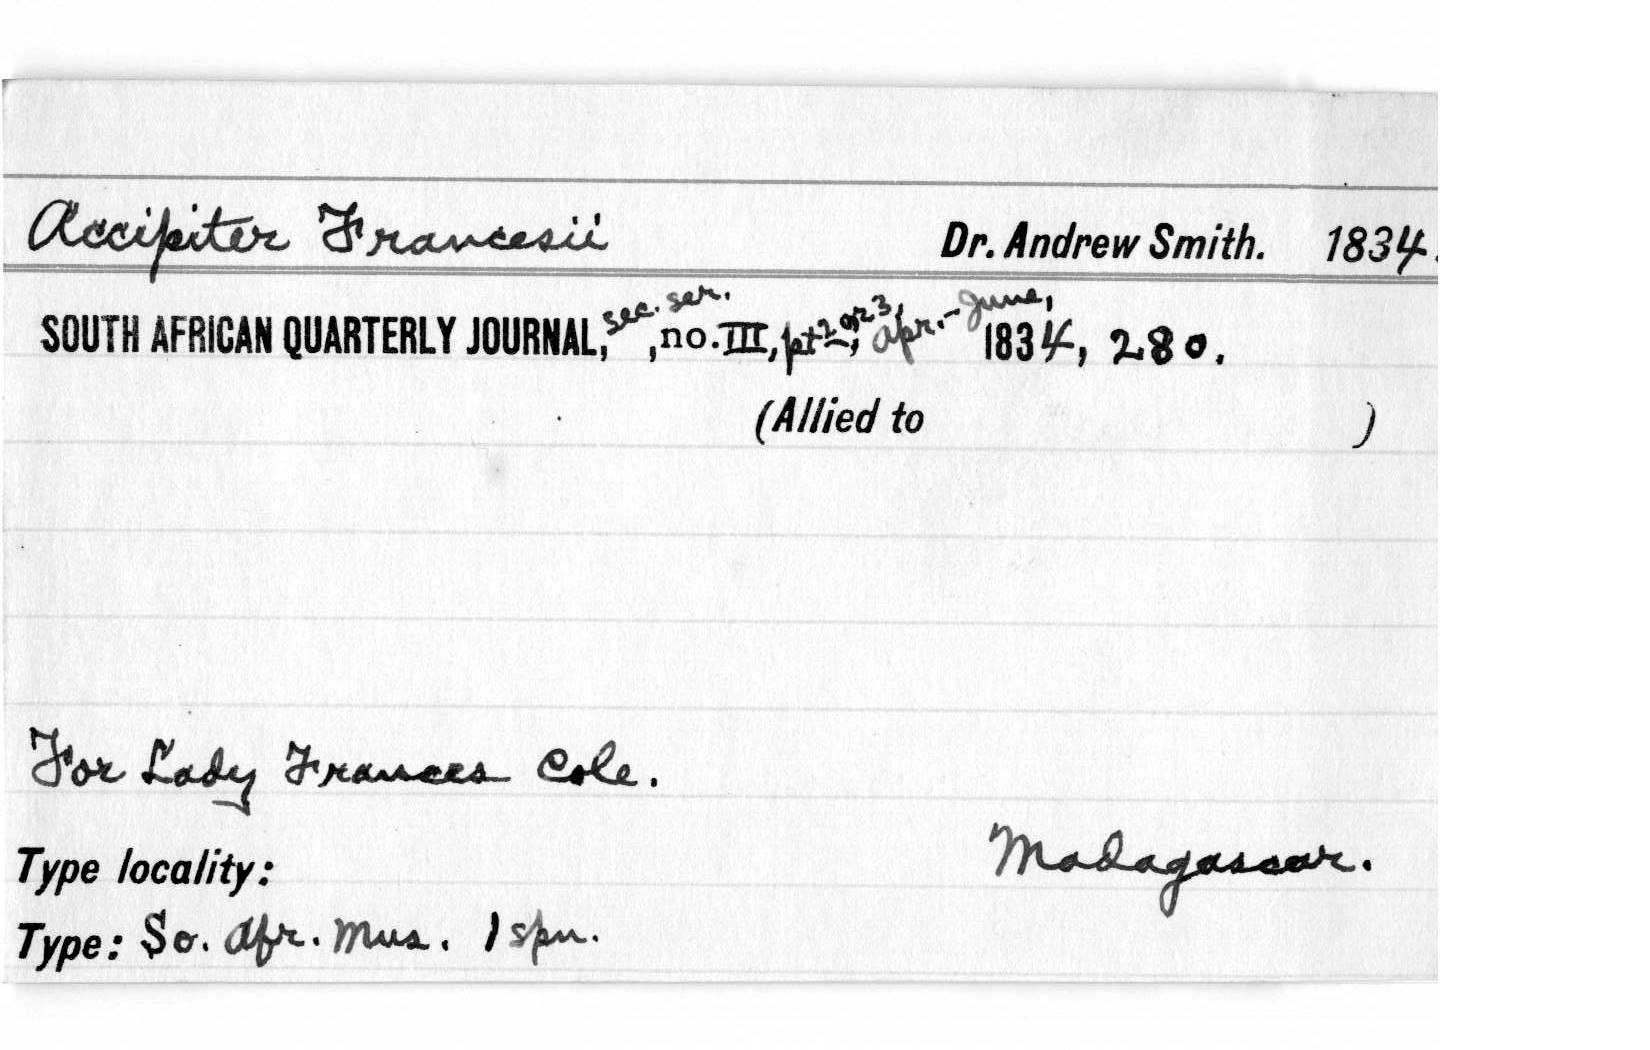 Accipiter Francesii Dr. Andrew Smith. 1834.
SOUTH AFRICAN QUARTERLY JOURNAL, sec. ser., no. III, pt 2 or 3, Apr.-June, 1834, 280.
(Allied to )
For Lady Frances Cole.
Type locality: Madagascar.
Type: So. Afr. Mus. 1 spn.